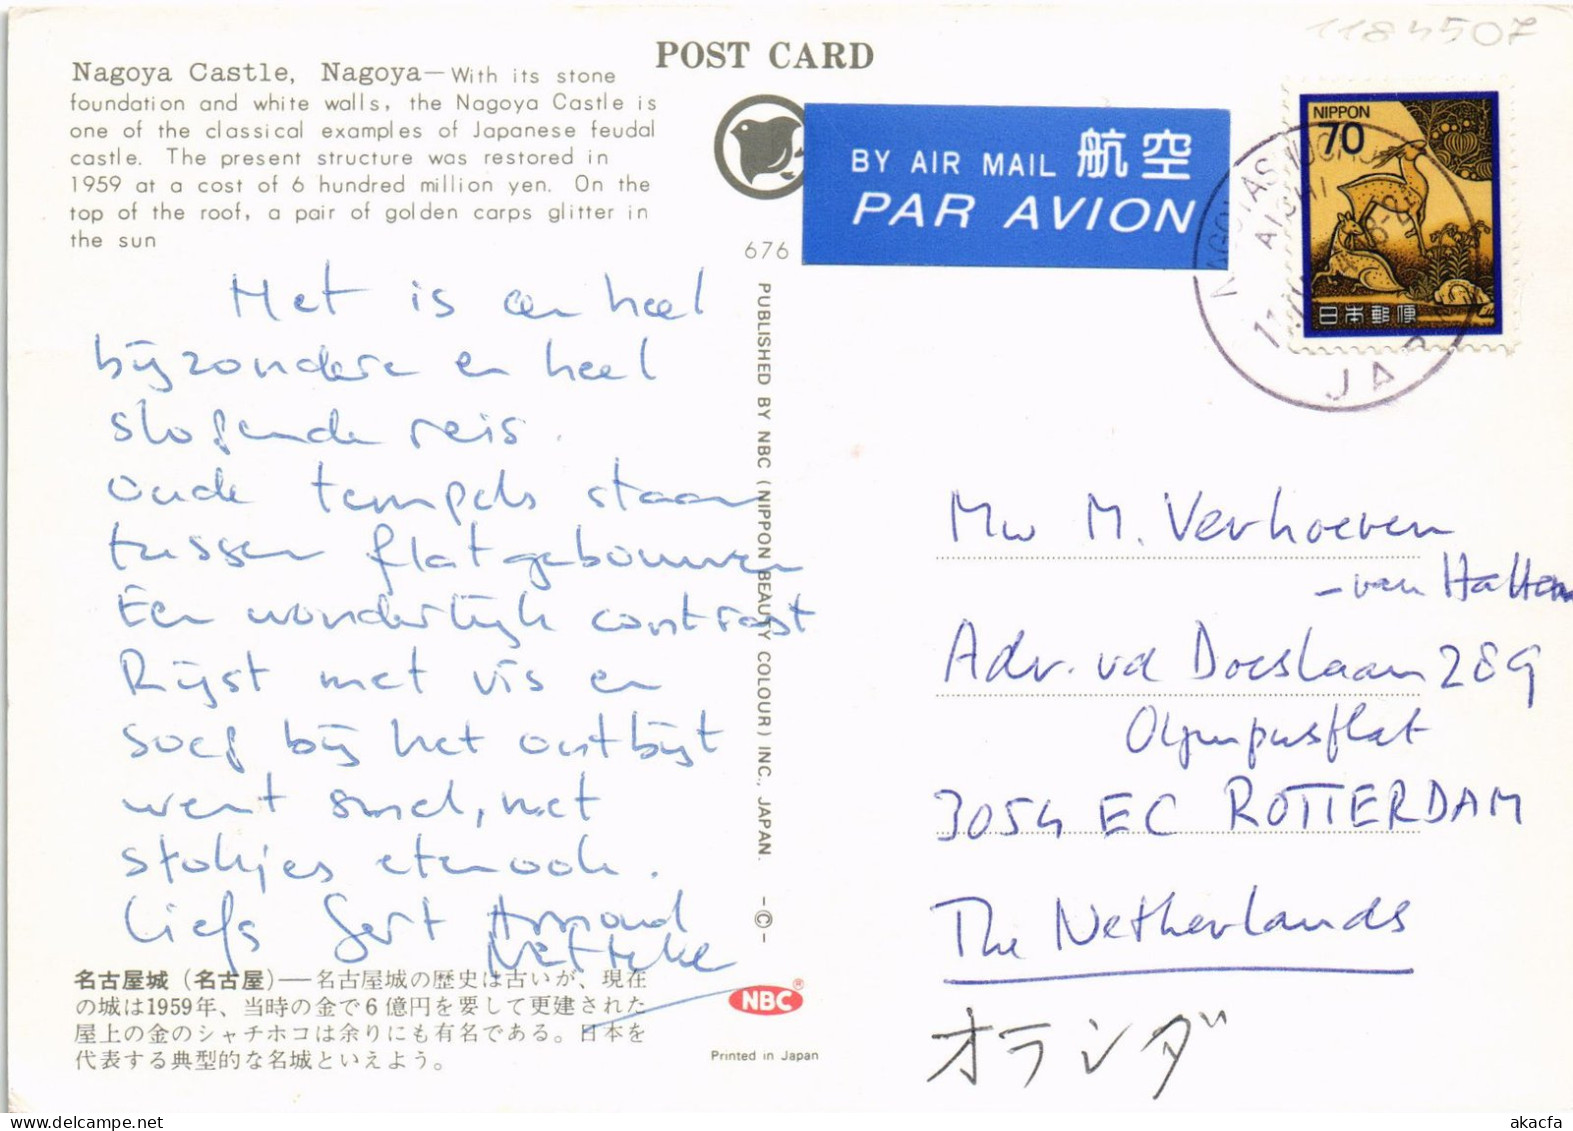 1184507
POST CARD
Nagoya Castle, Nagoya—With its stone
foundation and white walls, the Nagoya Castle is
one of the classical examples of Japanese feudal
castle. The present structure was restored in
1959 at a cost of 6 hundred million yen. On the
top of the roof, a pair of golden carps glitter in
the sun
BY AIR MAIL 航空
PAR AVION
NIPPON
70
日本郵便
AICHI
JAPAN
676
PUBLISHED BY NBC (NIPPON BEAUTY COLOUR) INC., JAPAN. —©—
Het is een heel
bijzondere en heel
slopende reis.
Oude tempels staan
tussen flatgebouwen
Een wonderlijk contrast
Rijst met vis en
soep bij het ontbijt
went snel, met
stokjes eten ook.
Liefs Gert Arnoud
Netteke
Mw M. Verhoeven
-van Hattem
Adr. vd Doeslaan 289
Olympusflat
3054 EC ROTTERDAM
The Netherlands
オランダ
名古屋城（名古屋）—名古屋城の歴史は古いが、現在
の城は1959年、当時の金で6億円を要して更建された
屋上の金のシャチホコは余りにも有名である。日本を
代表する典型的な名城といえよう。
NBC®
Printed in Japan
akacfa